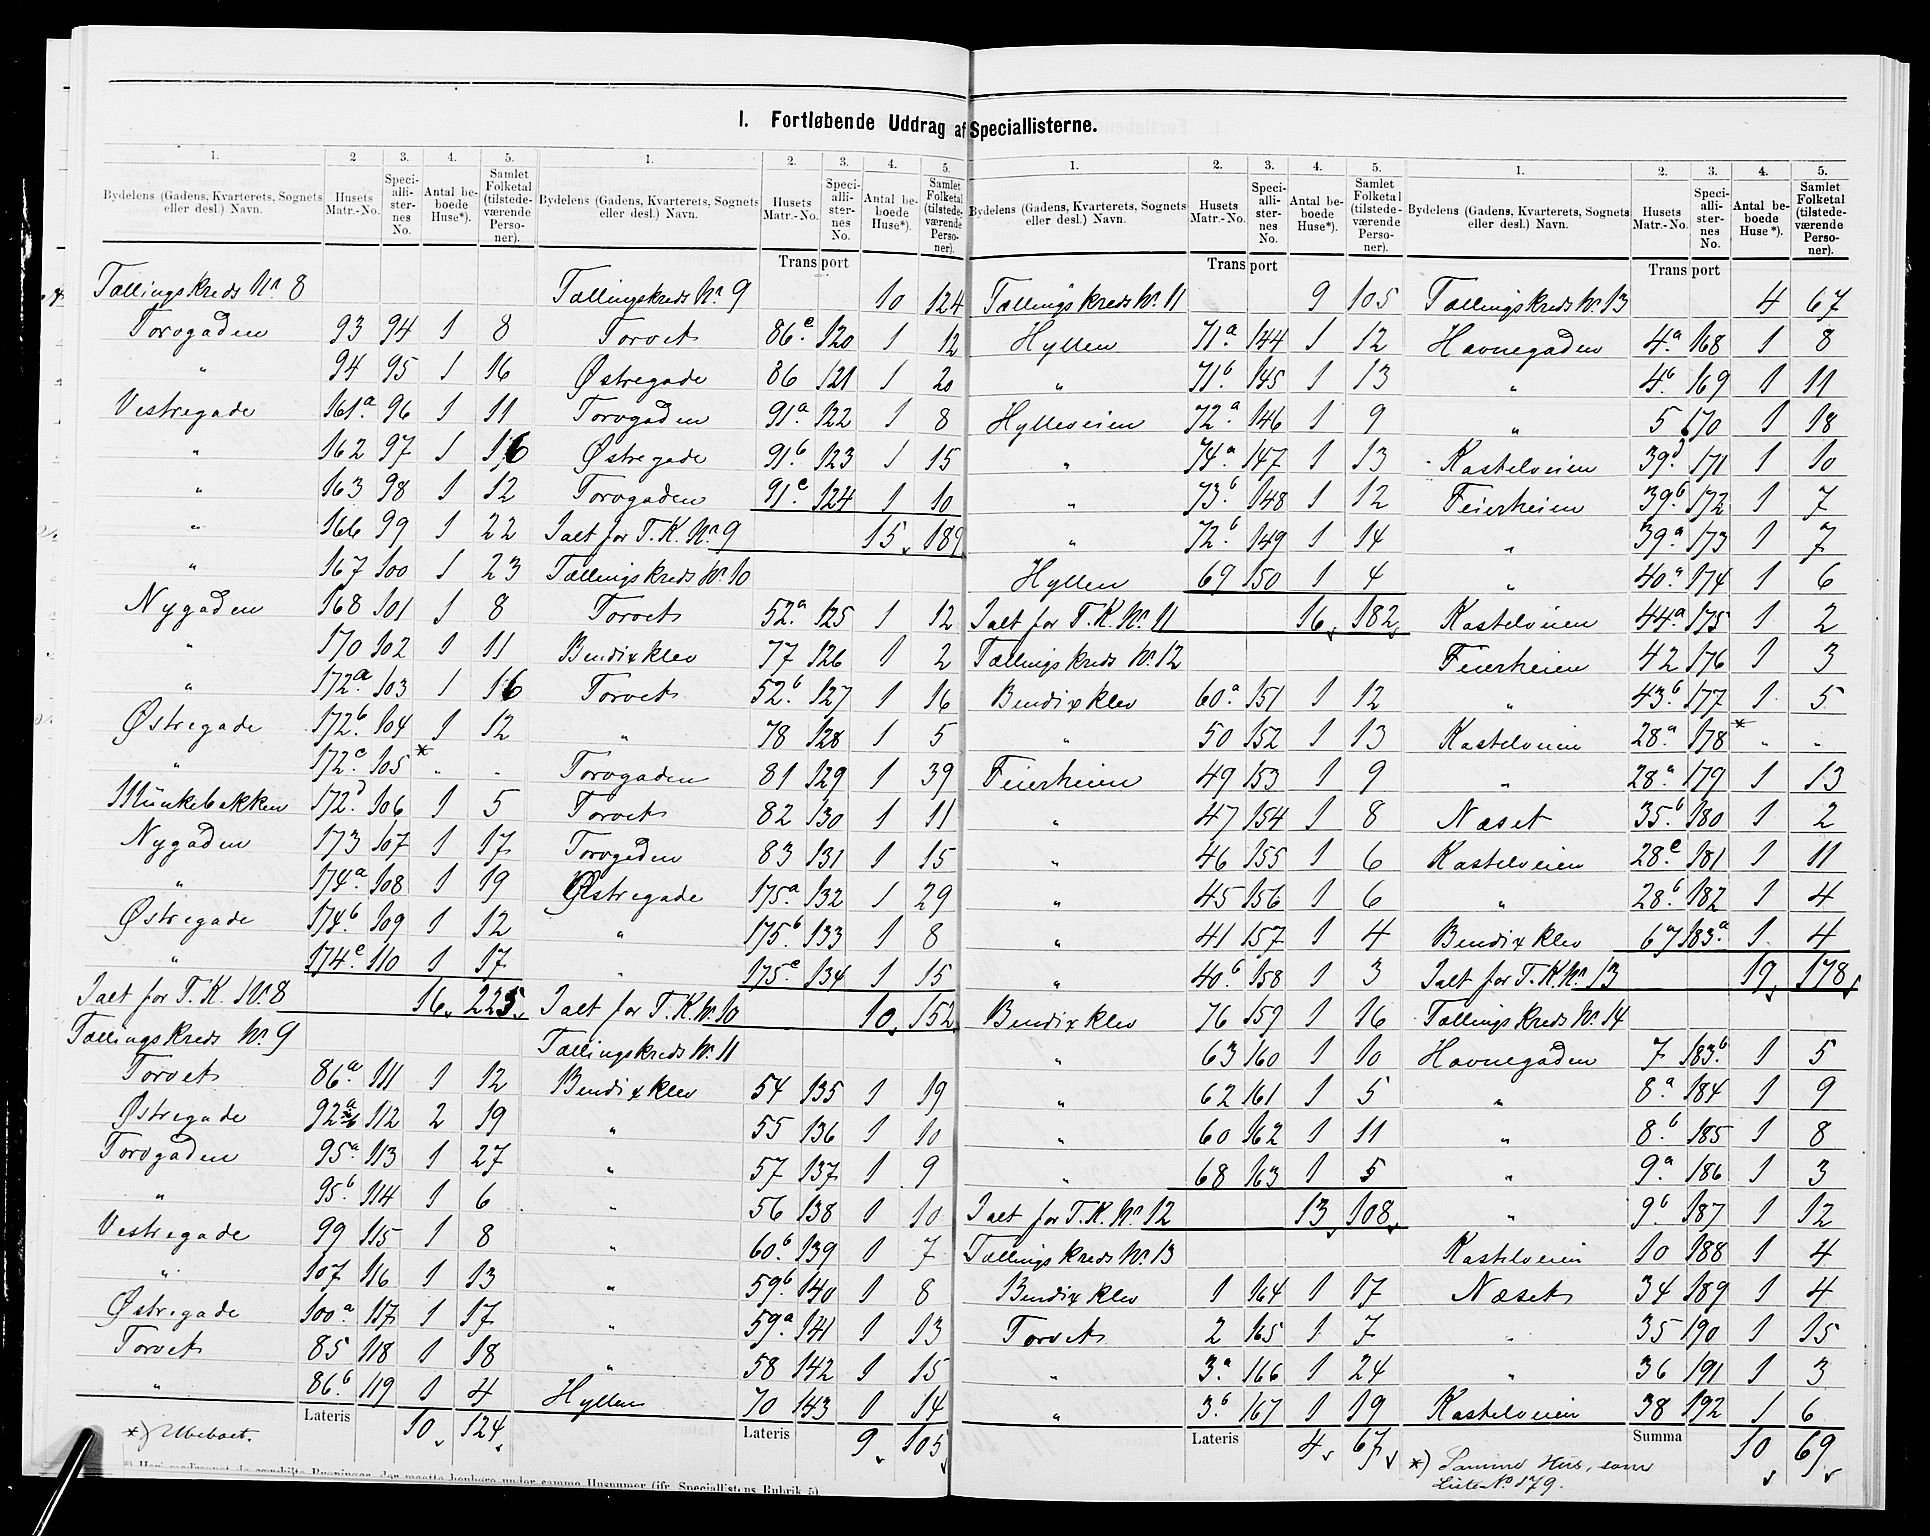 I. Fortløbende Uddrag af Speciallisterne.
1. 2 3. 4. 5.
Bydelens (Gadens, Kvarterets, Sognets eller desl.) Navn. Husets Matr.-No. Speciallisternes No. Antal beboede Huse*). Samlet Folketal (tilstedeværende Personer).
Tællingskreds No. 8
Torvgaden 93 94 1 8
" 94 95 1 16
Vestregade 161a. 96 1 11
" 162 97 1 16
" 163 98 1 12
" 166 99 1 22
" 167 100 1 23
Nygaden 168 101 1 8
" 170 102 1 11
" 172a. 103 1 16
Østregade 172b. 104 1 12
" 172c. 105* " "
Munkebakken 172d. 106 1 5
Nygaden 173 107 1 17
" 174a. 108 1 19
Østregade 174b. 109 1 12
" 174c. 110 1 17
Ialt for T. K. No. 8 16 225
Tællingskreds No. 9
Torvet 86a. 111 1 12
Østregade 92a&b 112 2 19
Torvgaden 95a. 113 1 27
" 95b. 114 1 6
Vestregade 99 115 1 8
" 107 116 1 13
Østregade 100a. 117 1 17
Torvet 85 118 1 18
" 86b. 119 1 4
Lateris 10 124
*) Ubeboet.
1. 2. 3. 4. 5.
Bydelens (Gadens, Kvarterets, Sognets eller desl.) Navn. Husets Matr.-No. Speciallisternes No. Antal beboede Huse*). Samlet Folketal (tilstedeværende Personer).
Transport
Tællingskreds No. 9 10 124
Torvet 86c. 120 1 12
Østregade 86 121 1 20
Torvgaden 91a. 122 1 8
Østregade 91b. 123 1 15
Torvgaden 91c. 124 1 10
Ialt for T. K. No. 9 15 189
Tællingskreds No. 10
Torvet 52a. 125 1 12
Bendixklev 77 126 1 2
Torvet 52b. 127 1 16
" 78 128 1 5
Torvgaden 81 129 1 39
Torvet 82 130 1 11
Torvgaden 83 131 1 15
Østregade 175a. 132 1 29
" 175b. 133 1 8
" 175c. 134 1 15
Ialt for T. K. No. 10 10 152
Tællingskreds No. 11
Bendixklev 54 135 1 19
" 55 136 1 10
" 57 137 1 9
" 56 138 1 10
" 60b. 139 1 7
" 59b. 140 1 8
" 59a. 141 1 13
" 58 142 1 15
Hyllen 70 143 1 14
Lateris 9 105
1. 2. 3. 4. 5.
Bydelens (Gadens, Kvarterets, Sognets eller desl.) Navn. Husets Matr.-No. Speciallisternes No. Antal beboede Huse*). Samlet Folketal (tilstedeværende Personer).
Transport
Tællingskreds No. 11 9 105
Hyllen 71a. 144 1 12
" 71b. 145 1 13
Hylleveien 72a. 146 1 9
" 74a. 147 1 13
" 73b. 148 1 12
" 72b. 149 1 14
Hyllen 69 150 1 4
Ialt for T. K. No. 11 16 182
Tællingskreds No. 12
Bendixklev 60a. 151 1 12
" 50 152 1 13
Feierheien 49 153 1 9
" 47 154 1 8
" 46 155 1 6
" 45 156 1 6
" 41 157 1 4
" 40b. 158 1 3
Bendixklev 76 159 1 16
" 63 160 1 10
" 62 161 1 5
" 60 162 1 11
" 68 163 1 5
Ialt for T. K. No. 12 13 108
Tællingskreds No. 13
Bendixklev 1 164 1 17
Torvet 2 165 1 7
" 3a. 166 1 24
" 3b. 167 1 19
Lateris 4 67
1. 2. 3. 4. 5.
Bydelens (Gadens, Kvarterets, Sognets eller desl.) Navn. Husets Matr.-No. Speciallisternes No. Antal beboede Huse*). Samlet Folketal (tilstedeværende Personer).
Transport
Tællingskreds No. 13 4 67
Havnegaden 4a. 168 1 8
" 4b. 169 1 11
" 5 170 1 18
Kastelveien 39d. 171 1 10
Feierheien 39b. 172 1 7
" 39a. 173 1 7
" 40a. 174 1 6
Kastelveien 44a. 175 1 2
Feierheien 42 176 1 3
" 43b. 177 1 5
Kastelveien 28a. 178* " "
" 28a. 179 1 13
Næset 35b. 180 1 2
Kastelveien 28c. 181 1 11
" 28b. 182 1 4
Bendixklev 67 183a. 1 4
Ialt for T. K. No. 13 19 178
Tællingskreds No. 14
Havnegaden 7 183b. 1 5
" 8a. 184 1 9
" 8b. 185 1 8
" 9a. 186 1 3
" 9b. 187 1 12
Kastelveien 10 188 1 4
Næset 34 189 1 4
" 35 190 1 15
" 36 191 1 3
Kastelveien 38 192 1 6
Summa 10 69
*) Samme Hus, som
Liste No. 179.